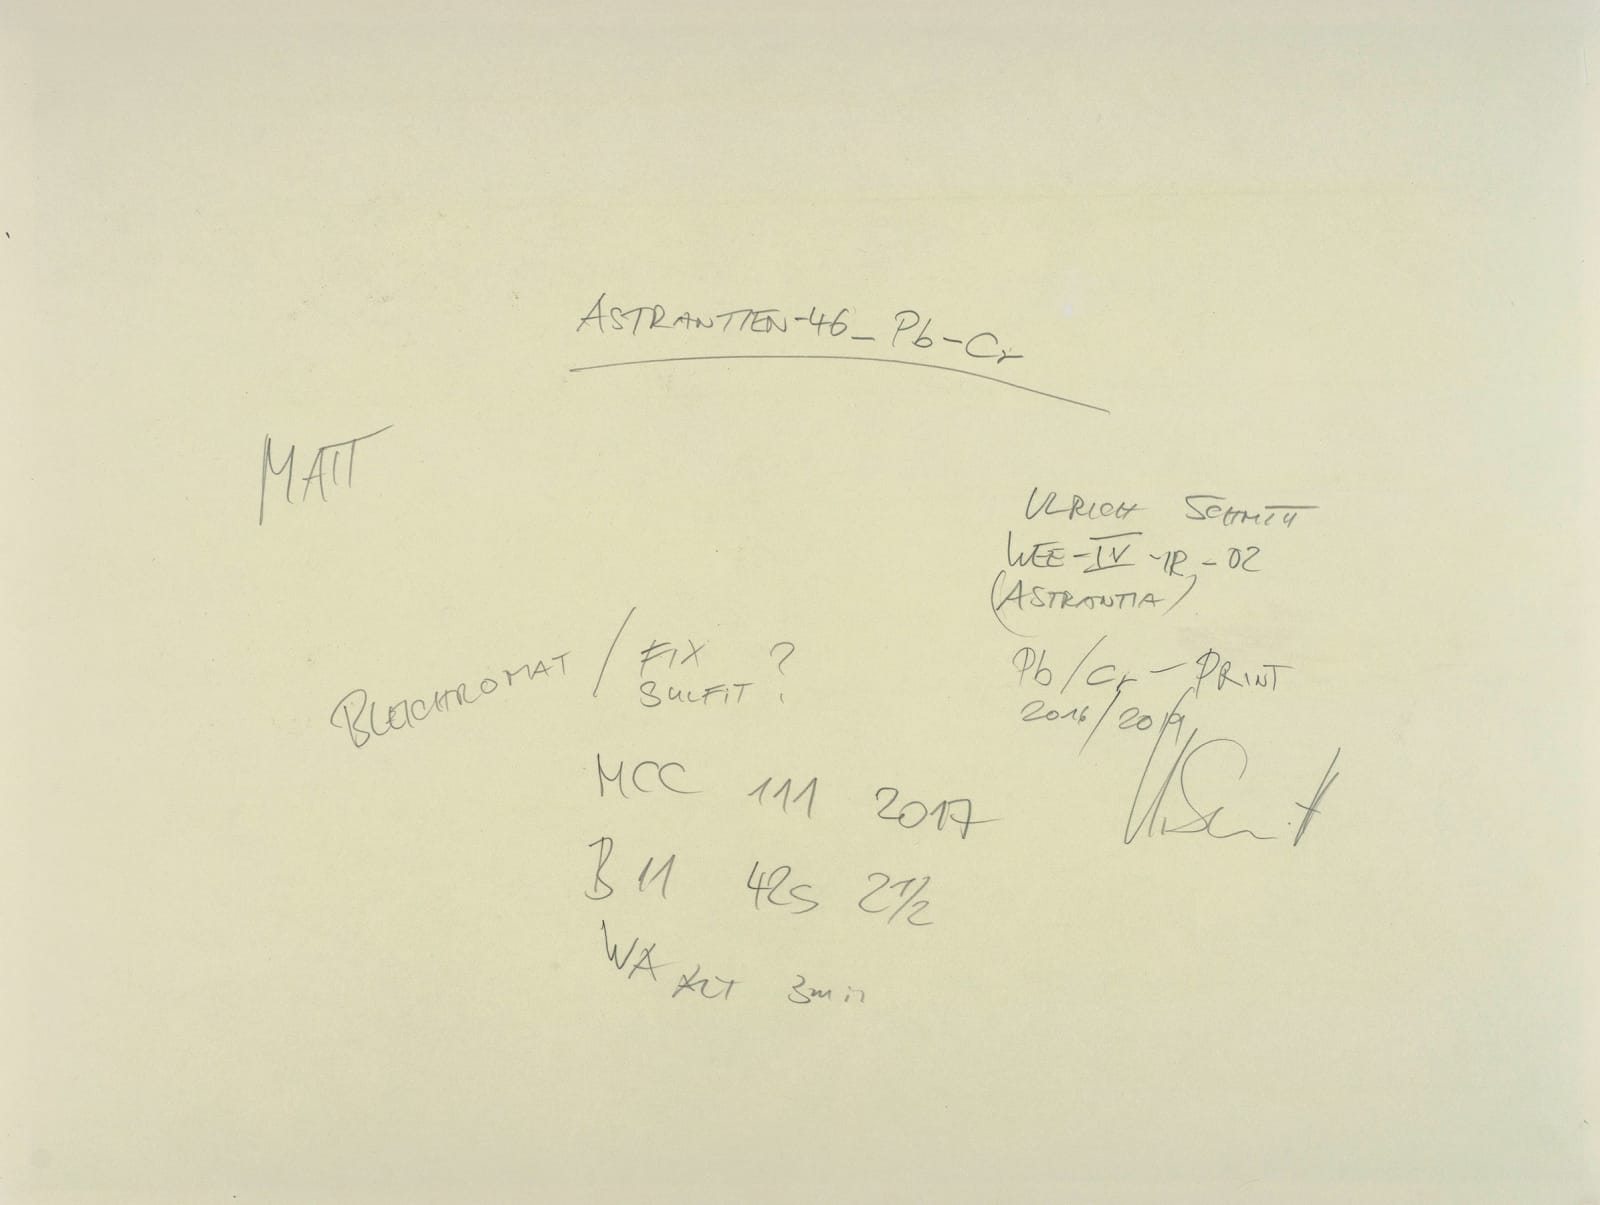 ASTRANTIEN-46_Pb-Cr
MATT
ULRICH SCHMITT
WEE-IV-1R-02
(ASTRANTIA)
BLEICHROMAT / FIX
SULFIT ?
Pb/Cr-PRINT
2016/2019
MCC 111 2017
B 11 42s 2 1/2
WA ALT 3min